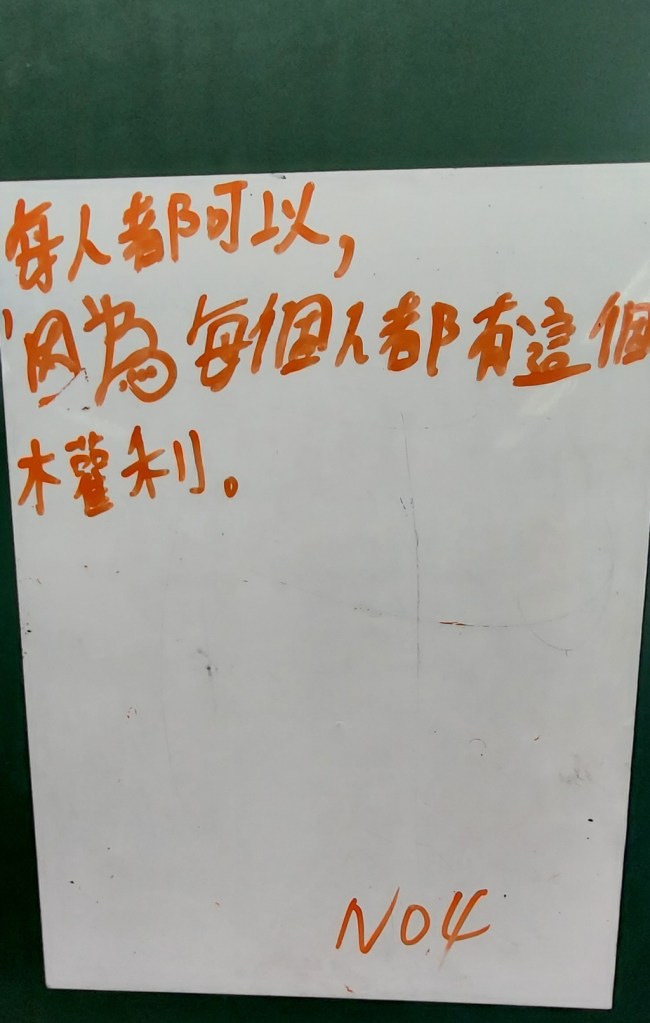 每人都可以,
因為每個人都有這個
權利。
NO4